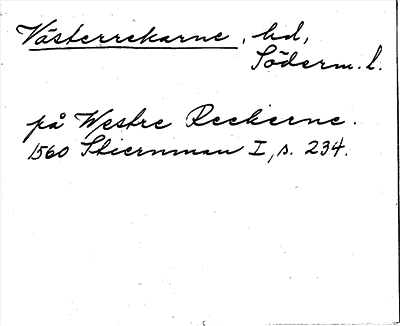 Västerrekarne, hd,
Söderm. l.
på Westre Reekerne.
1560 Stiernman I, s. 234.